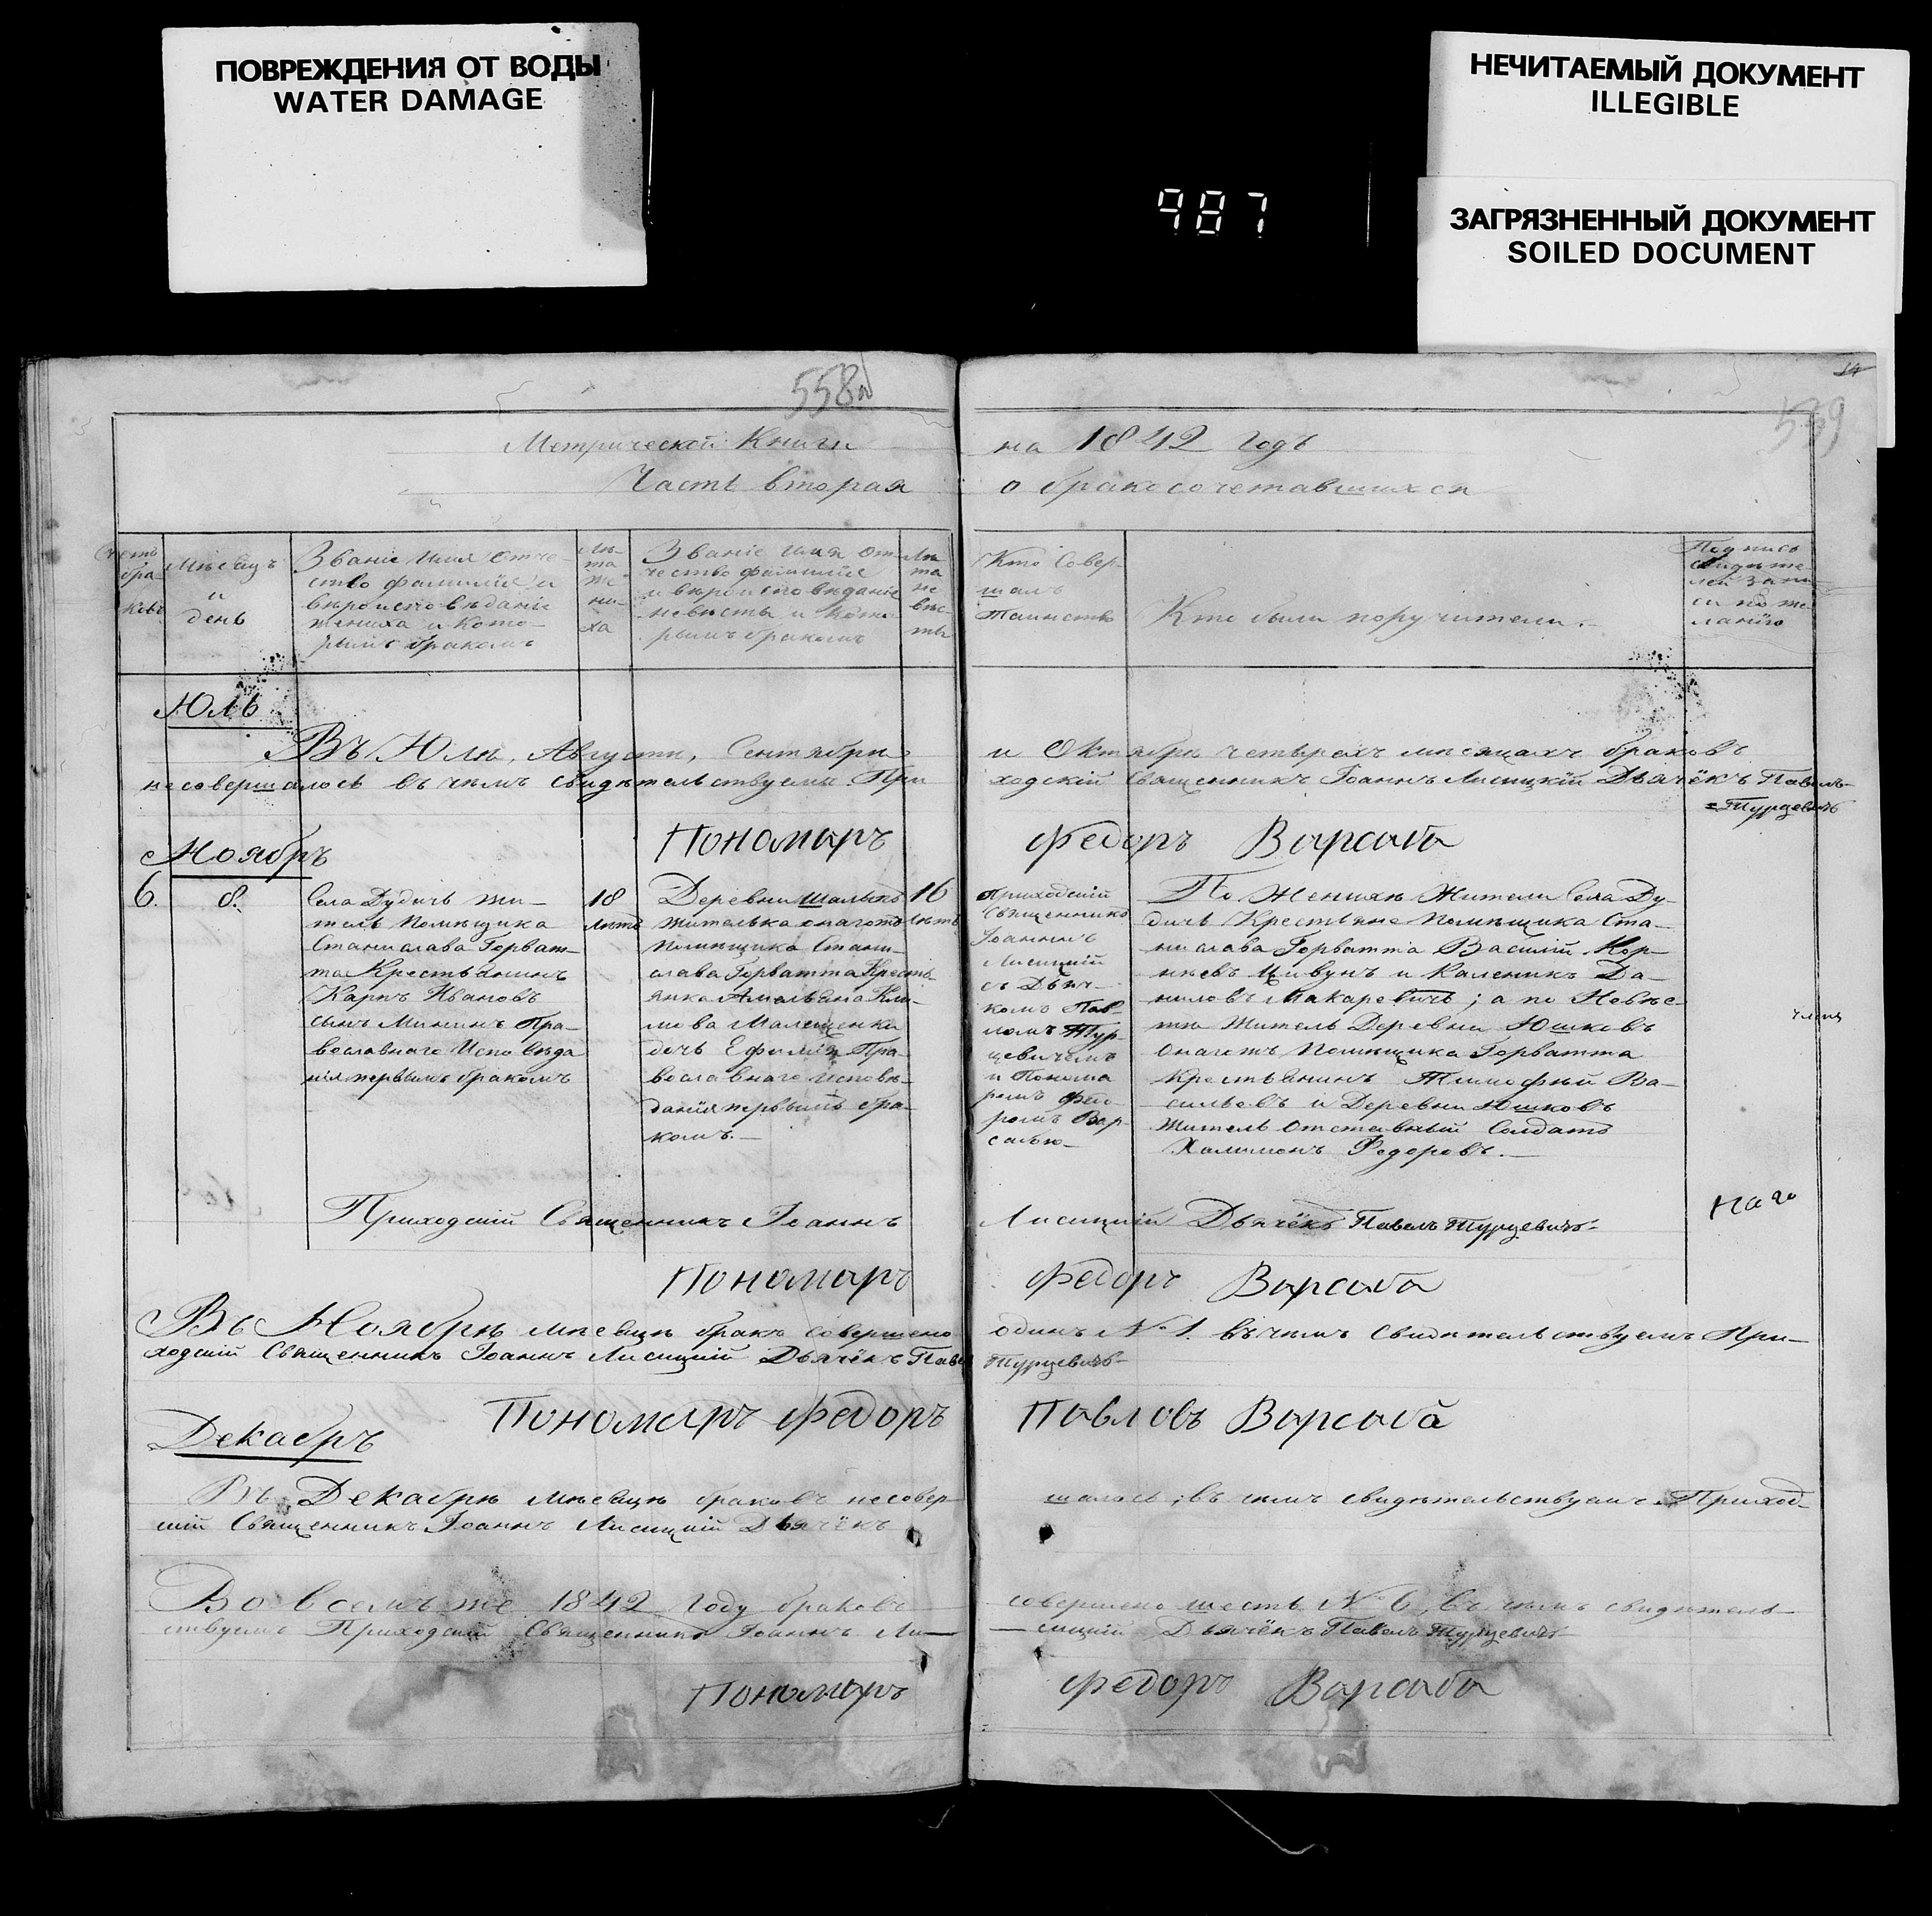 ПОВРЕЖДЕНИЯ ОТ ВОДЫ
WATER DAMAGE
НЕЧИТАЕМЫЙ ДОКУМЕНТ
ILLEGIBLE
987
ЗАГРЯЗНЕННЫЙ ДОКУМЕНТ
SOILED DOCUMENT
558
559
Метрической Книги на 1842 годъ
Часть вторая о бракосочетавшихся
Счетъ
бра-
ковъ
Мѣсяцъ
и
день
Званіе имя отче-
ство фамилія и
вѣроисповѣданіе
жениха и кото-
рымъ бракомъ
Лѣ-
та
же-
ни-
ха
Званіе имя от-
чество фамилія
и вѣроисповѣданіе
невѣсты и кото-
рымъ бракомъ
Лѣ
та
не
вѣс
ты
Кто совер-
шалъ
таинство
Кто были поручители.
Подпись
свидѣте
лей запи
си по же
ланію
Юль
Въ Юлѣ, Августѣ, Сентябрѣ и Октябрѣ четырехъ мѣсяцахъ браковъ
несовершалось въ чемъ свидѣтельствуемъ При
ходскій Священникъ Іоаннъ Лисицкій Дьячёкъ Павелъ
Турцевичъ
Пономаръ Федоръ Варсаба
Ноябръ
6.
8.
Села Дудичъ жи-
тель Помѣщика
Станислава Горват-
та Крестьянинъ
Карпъ Ивановъ
сынъ Мининъ Пра-
вославнаго Исповѣда
нія первымъ бракомъ
18
лѣтъ
Деревни
жителька онагожъ
Помѣщика Стани-
слава Горватта Кресть
янка Кли-
мова
дочь Пра-
вославнаго исповѣ-
данія первымъ бра-
комъ.
16
лѣтъ
Приходскій
Священникъ
Іоаннъ
Лисицкій
съ Дьяч-
комъ Пав-
ломъ Тур-
цевичемъ
и Понома
ремъ Фед
ромъ Вар-
сабою
По Женихѣ Жители Села Ду-
дичъ Крестьяне Помѣщика Ста-
нислава Горватта Василій Кор-
нѣевъ Цивунъ и Каленикъ Да-
ниловъ Макаревичъ; а по Невѣс-
тѣ Житель Деревни Юшковъ
Онагожъ Помѣщика Горватта
Крестьянинъ Тимофѣй Ва-
сильевъ и Деревни Юшковъ
житель Отставный Солдатъ
Халимонъ Федоровъ.
Приходскій Священникъ Іоаннъ Лисицкій Дьячёкъ Павелъ Турцевичъ
Пономаръ Федоръ Варсаба
Въ Ноябрѣ мѣсяцѣ бракъ совершено одинъ №1. въ чемъ свидѣтельствуемъ При-
ходскій Священникъ Іоаннъ Лисицкій Дьячёкъ Павелъ Турцевичъ
Пономаръ Федоръ Павловъ Варсаба
Декабръ
Въ Декабрѣ мѣсяцѣ браковъ несовер-
шалось; въ чемъ свидѣтельствуемъ Приход-
скій Священникъ Іоаннъ Лисицкій Дьячёкъ
Во всемъ же 1842 году браковъ совершено шесть №6, въ чемъ свидѣтель-
ствуемъ Приходскій Священникъ Іоаннъ Ли-
сицкій Дьячёкъ Павелъ Турцевичъ
Пономаръ Федоръ Варсаба